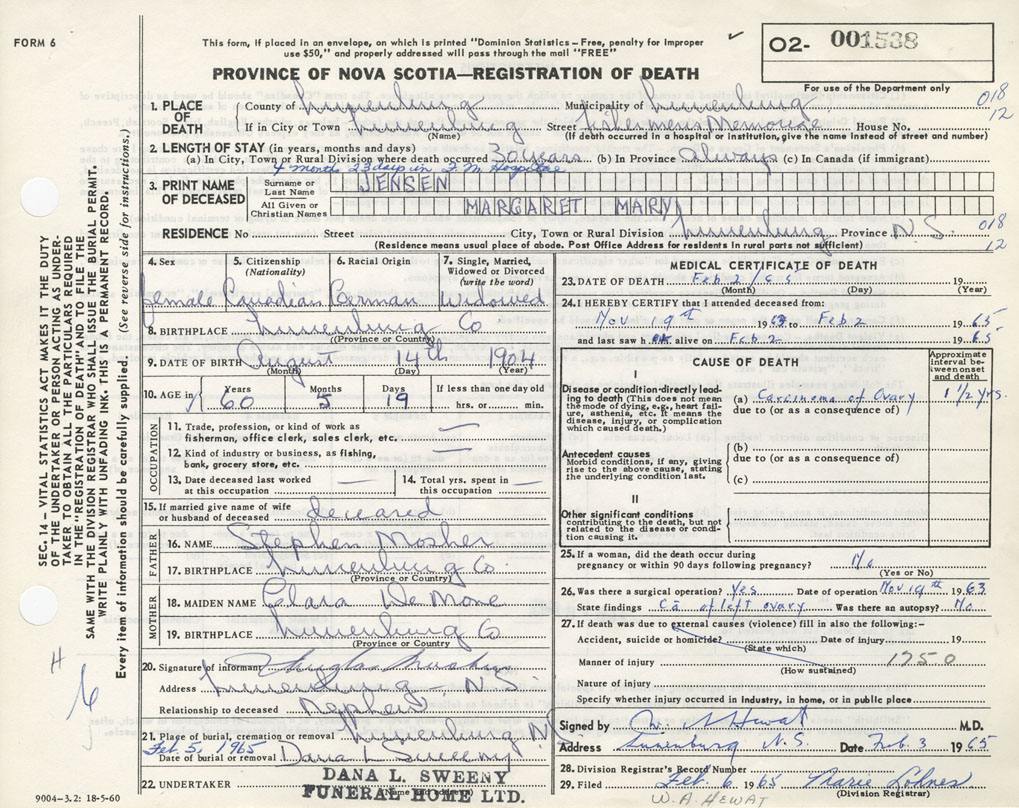 FORM 6
This form, if placed in an envelope, on which is printed "Dominion Statistics—Free, penalty for improper
use $50," and properly addressed will pass through the mail "FREE"
O2- 001538
PROVINCE OF NOVA SCOTIA—REGISTRATION OF DEATH
For use of the Department only
1. PLACE OF DEATH
County of Lunenburg Municipality of Lunenburg 018
If in City or Town Lunenburg Street Fishermens Memorial House No. 12
(Name) (If death occurred in a hospital or institution, give the name instead of street and number)
2. LENGTH OF STAY (in years, months and days)
(a) In City, Town or Rural Division where death occurred 30 years (b) In Province Always (c) In Canada (if immigrant)
4 months 23 days in F.M. Hospital
3. PRINT NAME OF DECEASED
Surname or Last Name JENSEN
All Given or Christian Names MARGARET MARY
RESIDENCE No Street City, Town or Rural Division Lunenburg Province N.S. 018
12
(Residence means usual place of abode. Post Office Address for residents in rural parts not sufficient)
4. Sex
5. Citizenship (Nationality)
6. Racial Origin
7. Single, Married, Widowed or Divorced (write the word)
female Canadian German Widowed
8. BIRTHPLACE Lunenburg Co
(Province or Country)
9. DATE OF BIRTH August 14th 1904
(Month) (Day) (Year)
10. AGE in
Years Months Days If less than one day old
60 5 19 hrs. or min.
OCCUPATION
11. Trade, profession or kind of work as
fisherman, office clerk, sales clerk, etc. —
12. Kind of industry or business, as fishing,
bank, grocery store, etc. —
13. Date deceased last worked
at this occupation —
14. Total yrs. spent in
this occupation —
15. If married give name of wife
or husband of deceased deceased
FATHER
16. NAME Stephen Mosher
17. BIRTHPLACE Lunenburg Co.
(Province or Country)
MOTHER
18. MAIDEN NAME Clara DeMone
19. BIRTHPLACE Lunenburg Co
(Province or Country)
20. Signature of informant
Address Lunenburg — N.S.
Relationship to deceased Nephew
21. Place of burial, cremation or removal Lunenburg N.S.
Feb. 5, 1965
Date of burial or removal Dana L Sweeny
22. UNDERTAKER DANA L. SWEENY
FUNERAL HOME LTD.
(Name and address)
MEDICAL CERTIFICATE OF DEATH
23. DATE OF DEATH Feb 2/65 19
(Month) (Day) (Year)
24. I HEREBY CERTIFY that I attended deceased from:
Nov 19th 1963 to Feb 2 1965
and last saw h er alive on Feb 2 1965
CAUSE OF DEATH
Approximate interval between onset and death
I
Disease or condition directly leading to death (This does not mean the mode of dying, e.g., heart failure, asthenia, etc. It means the disease, injury, or complication which caused death.)
(a) Carcinoma of Ovary 1 1/2 yrs.
due to (or as a consequence of)
Antecedent causes
Morbid conditions, if any, giving rise to the above cause, stating the underlying condition last.
(b)
due to (or as a consequence of)
(c)
II
Other significant conditions
contributing to the death, but not related to the disease or condition causing it.
25. If a woman, did the death occur during
pregnancy or within 90 days following pregnancy? No
(Yes or No)
26. Was there a surgical operation? Yes Date of operation Nov 19th 1963
State findings Ca of left ovary Was there an autopsy? No
27. If death was due to external causes (violence) fill in also the following:-
Accident, suicide or homicide? Date of injury 19
(State which)
Manner of injury 1750
(How sustained)
Nature of injury
Specify whether injury occurred in industry, in home, or in public place
Signed by W. A Hewat M.D.
Address Lunenburg N.S. Date Feb. 3 1965
28. Division Registrar's Record Number
29. Filed Feb 6 1965 Marie Lohnes
(Division Registrar)
W. A. HEWAT
SEC. 14 – VITAL STATISTICS ACT MAKES IT THE DUTY
OF THE UNDERTAKER OR PERSON ACTING AS UNDER-
TAKER TO OBTAIN ALL THE PARTICULARS REQUIRED
IN THE "REGISTRATION OF DEATH" AND TO FILE THE
SAME WITH THE DIVISION REGISTRAR WHO SHALL ISSUE THE BURIAL PERMIT.
WRITE PLAINLY WITH UNFADING INK. THIS IS A PERMANENT RECORD.
Every item of information should be carefully supplied (See reverse side for instructions.)
H
6
9004-3.2: 18-5-60